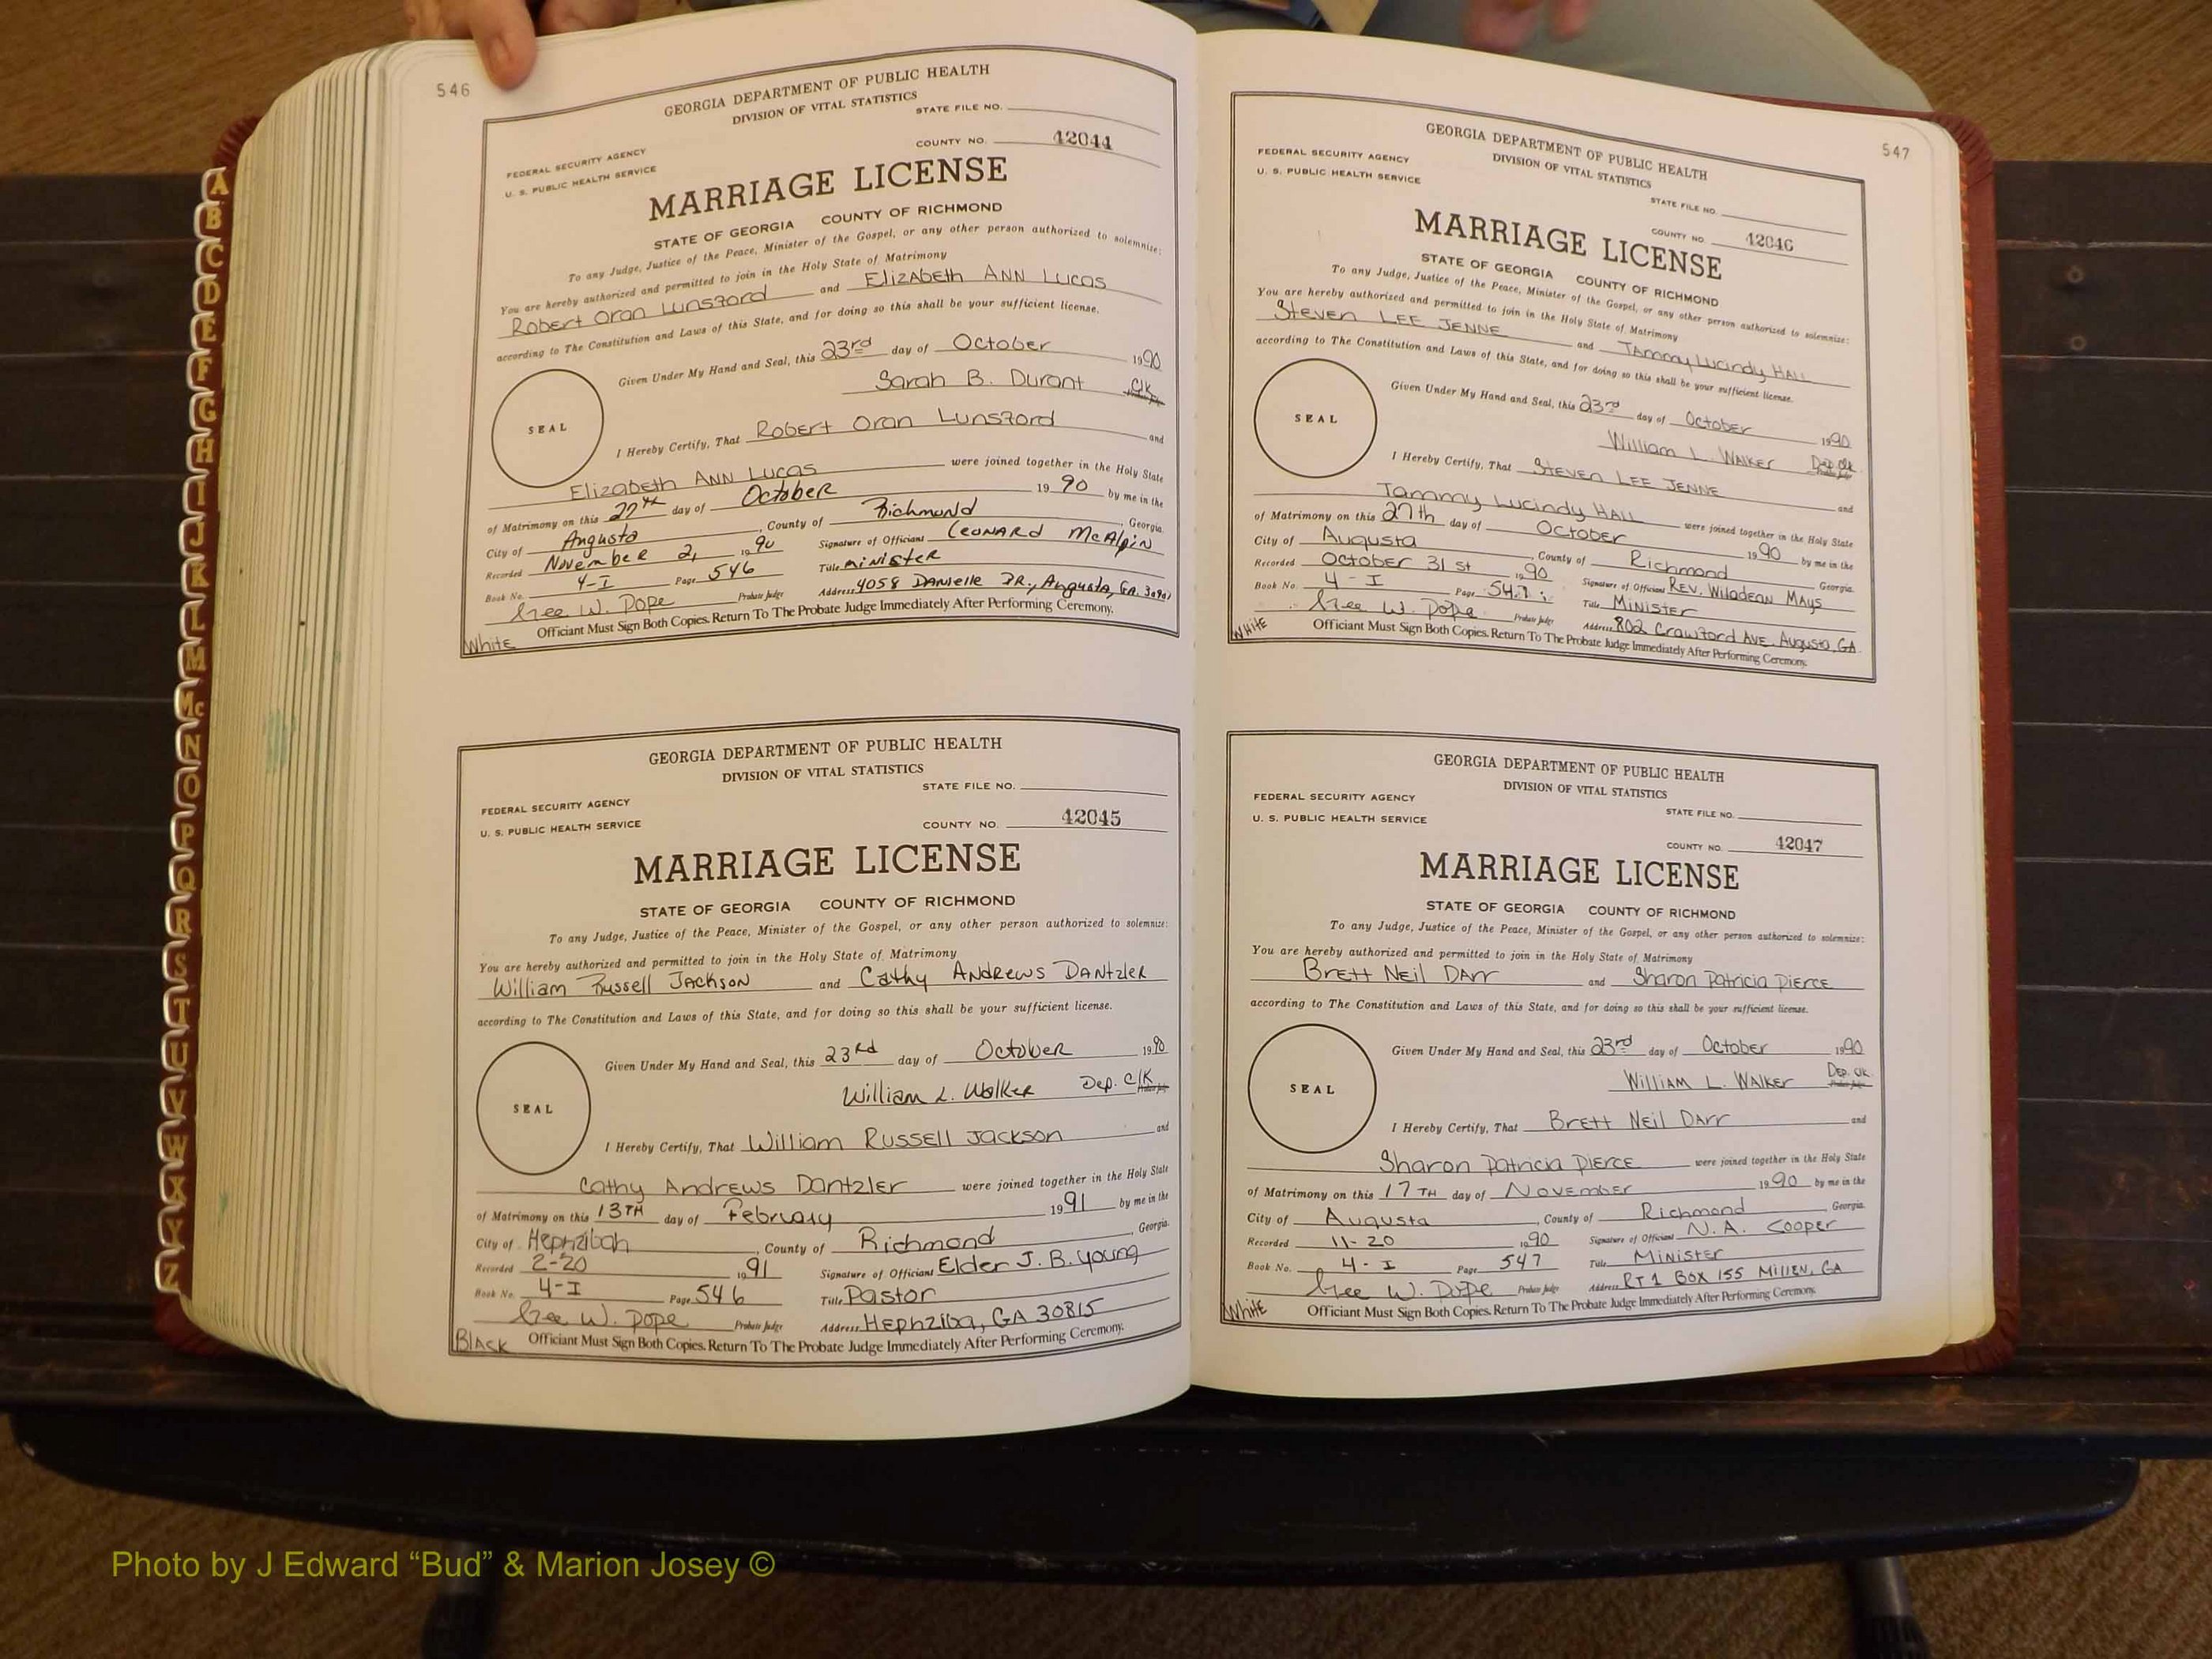 546
GEORGIA DEPARTMENT OF PUBLIC HEALTH
DIVISION OF VITAL STATISTICS
STATE FILE NO.
COUNTY NO. 42044
FEDERAL SECURITY AGENCY
U. S. PUBLIC HEALTH SERVICE
MARRIAGE LICENSE
STATE OF GEORGIA COUNTY OF RICHMOND
To any Judge, Justice of the Peace, Minister of the Gospel, or any other person authorized to solemnize:
You are hereby authorized and permitted to join in the Holy State of Matrimony
Robert Oran Lunsford and Elizabeth Ann Lucas
according to The Constitution and Laws of this State, and for doing so this shall be your sufficient license.
Given Under My Hand and Seal, this 23rd day of October 1990
Sarah B. Durant Clk
SEAL
I Hereby Certify, That Robert Oran Lunsford and
Elizabeth Ann Lucas were joined together in the Holy State
of Matrimony on this 27th day of October 19 90 by me in the
City of Augusta, County of Richmond, Georgia.
Recorded November 2, 1990 Signature of Officiant Leonard McAlpin
Book No. 4-I Page 546 Title Minister
Probate Judge Address 4058 Danielle Dr., Augusta, GA.
W. Pope
Officiant Must Sign Both Copies. Return To The Probate Judge Immediately After Performing Ceremony.
White
GEORGIA DEPARTMENT OF PUBLIC HEALTH
DIVISION OF VITAL STATISTICS
STATE FILE NO.
FEDERAL SECURITY AGENCY
U. S. PUBLIC HEALTH SERVICE
COUNTY NO. 42045
MARRIAGE LICENSE
STATE OF GEORGIA COUNTY OF RICHMOND
To any Judge, Justice of the Peace, Minister of the Gospel, or any other person authorized to solemnize:
You are hereby authorized and permitted to join in the Holy State of Matrimony
William Russell Jackson and Cathy Andrews Dantzler
according to The Constitution and Laws of this State, and for doing so this shall be your sufficient license.
Given Under My Hand and Seal, this 23rd day of October 1990
William L. Walker Dep. Clk
SEAL
I Hereby Certify, That William Russell Jackson and
Cathy Andrews Dantzler were joined together in the Holy State
of Matrimony on this 13TH day of February 1991 by me in the
City of Hephzibah, County of Richmond, Georgia.
Recorded 2-20 1991 Signature of Officiant Elder J. B. Young
Book No. 4-I Page 546 Title Pastor
W. Pope Probate Judge Address Hephziba, GA 30815
Officiant Must Sign Both Copies. Return To The Probate Judge Immediately After Performing Ceremony.
Black
547
GEORGIA DEPARTMENT OF PUBLIC HEALTH
DIVISION OF VITAL STATISTICS
FEDERAL SECURITY AGENCY
U. S. PUBLIC HEALTH SERVICE
STATE FILE NO.
COUNTY NO. 42046
MARRIAGE LICENSE
STATE OF GEORGIA COUNTY OF RICHMOND
To any Judge, Justice of the Peace, Minister of the Gospel, or any other person authorized to solemnize:
You are hereby authorized and permitted to join in the Holy State of Matrimony
Steven Lee Jenne and Tammy Lucindy Hall
according to The Constitution and Laws of this State, and for doing so this shall be your sufficient license.
Given Under My Hand and Seal, this 23rd day of October 1990
William L. Walker Dep. Clk.
SEAL
I Hereby Certify, That Steven Lee Jenne and
Tammy Lucindy Hall were joined together in the Holy State
of Matrimony on this 27th day of October 1990 by me in the
City of Augusta, County of Richmond Georgia.
Recorded October 31st 1990 Signature of Officiant Rev. Wiladean Mays
Book No. 4-I Page 547 Title Minister
W. Pope Probate Judge Address 802 Crawford Ave. Augusta, GA
Officiant Must Sign Both Copies. Return To The Probate Judge Immediately After Performing Ceremony.
White
GEORGIA DEPARTMENT OF PUBLIC HEALTH
DIVISION OF VITAL STATISTICS
FEDERAL SECURITY AGENCY
U. S. PUBLIC HEALTH SERVICE
STATE FILE NO.
COUNTY NO. 42047
MARRIAGE LICENSE
STATE OF GEORGIA COUNTY OF RICHMOND
To any Judge, Justice of the Peace, Minister of the Gospel, or any other person authorized to solemnize:
You are hereby authorized and permitted to join in the Holy State of Matrimony
Brett Neil Darr and Sharon Patricia Pierce
according to The Constitution and Laws of this State, and for doing so this shall be your sufficient license.
Given Under My Hand and Seal, this 23rd day of October 1990
William L. Walker Dep. Clk.
SEAL
I Hereby Certify, That Brett Neil Darr and
Sharon Patricia Pierce were joined together in the Holy State
of Matrimony on this 17TH day of November 1990 by me in the
City of Augusta, County of Richmond Georgia.
Recorded 11-20 1990 Signature of Officiant N.A. Cooper
Book No. 4-I Page 547 Title Minister
W. Pope Probate Judge Address RT 1 Box 155 Millen, GA
Officiant Must Sign Both Copies. Return To The Probate Judge Immediately After Performing Ceremony.
White
A
B
C
D
E
F
G
H
I
J
K
L
M
Mc
N
O
P
Q
R
S
T
U
V
W
X
Y
Z
Photo by J Edward “Bud” & Marion Josey ©